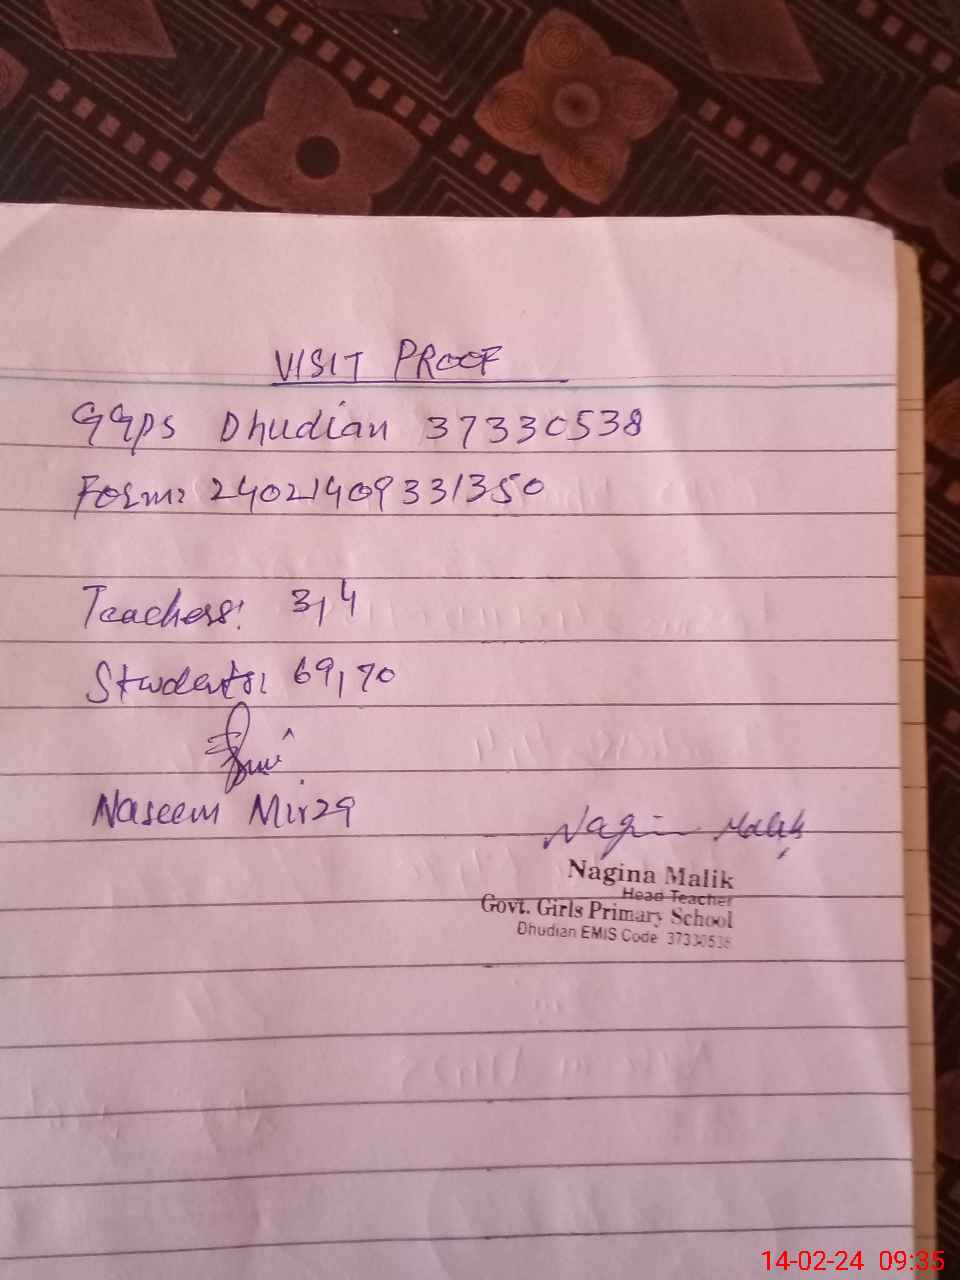 VISIT PROOF
GGPS Dhudian 37330538
Form: 24021409331350
Teachers: 3,4
Students: 69,70
Naseem Mirza
Nagina Malik
Nagina Malik
Head Teacher
Govt. Girls Primary School
Dhudian EMIS Code 37330538
14-02-24 09:35